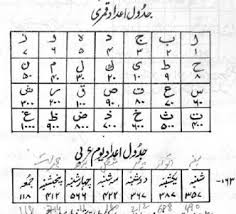 جدول اعداد قمری
ا ب ج د ه و ز
۱ ۲ ۳ ۴ ۵ ۶ ۷
ح ط ی ک ل م ن
۸ ۹ ۱۰ ۲۰ ۳۰ ۴۰ ۵۰
س ع ف ص ق ر ش
۶۰ ۷۰ ۸۰ ۹۰ ۱۰۰ ۲۰۰ ۳۰۰
ت ث خ ذ ض ظ غ
۴۰۰ ۵۰۰ ۶۰۰ ۷۰۰ ۸۰۰ ۹۰۰ ۱۰۰۰
جدول اعداد یوم عربی
۱۶۳-
شنبه یکشنبه دوشنبه سه شنبه چهارشنبه پنجشنبه جمعه
۳۵۷ ۳۸۷ ۳۶۷ ۴۲۲ ۵۶۶ ۴۱۲ ۱۱۸